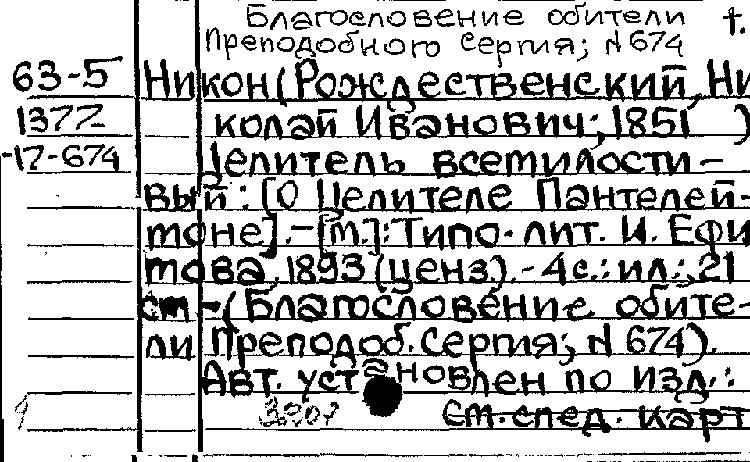 Благословение обители †.
Преподобного Сергия; N 674
63-5 Никон (Рождественский, Ни
1377 колай Иванович; 1851 )
-17-674 Целитель всемилости-
вый: [О Целителе Пантелей-
моне]. - [М.]: Типо-лит. И. Ефи
мова, 1893 (ценз). - 4 с.: ил.; 21
см - (Благословение обите-
ли Преподоб. Сергия; N 674).
Авт. установлен по изд.:
См. след. карт